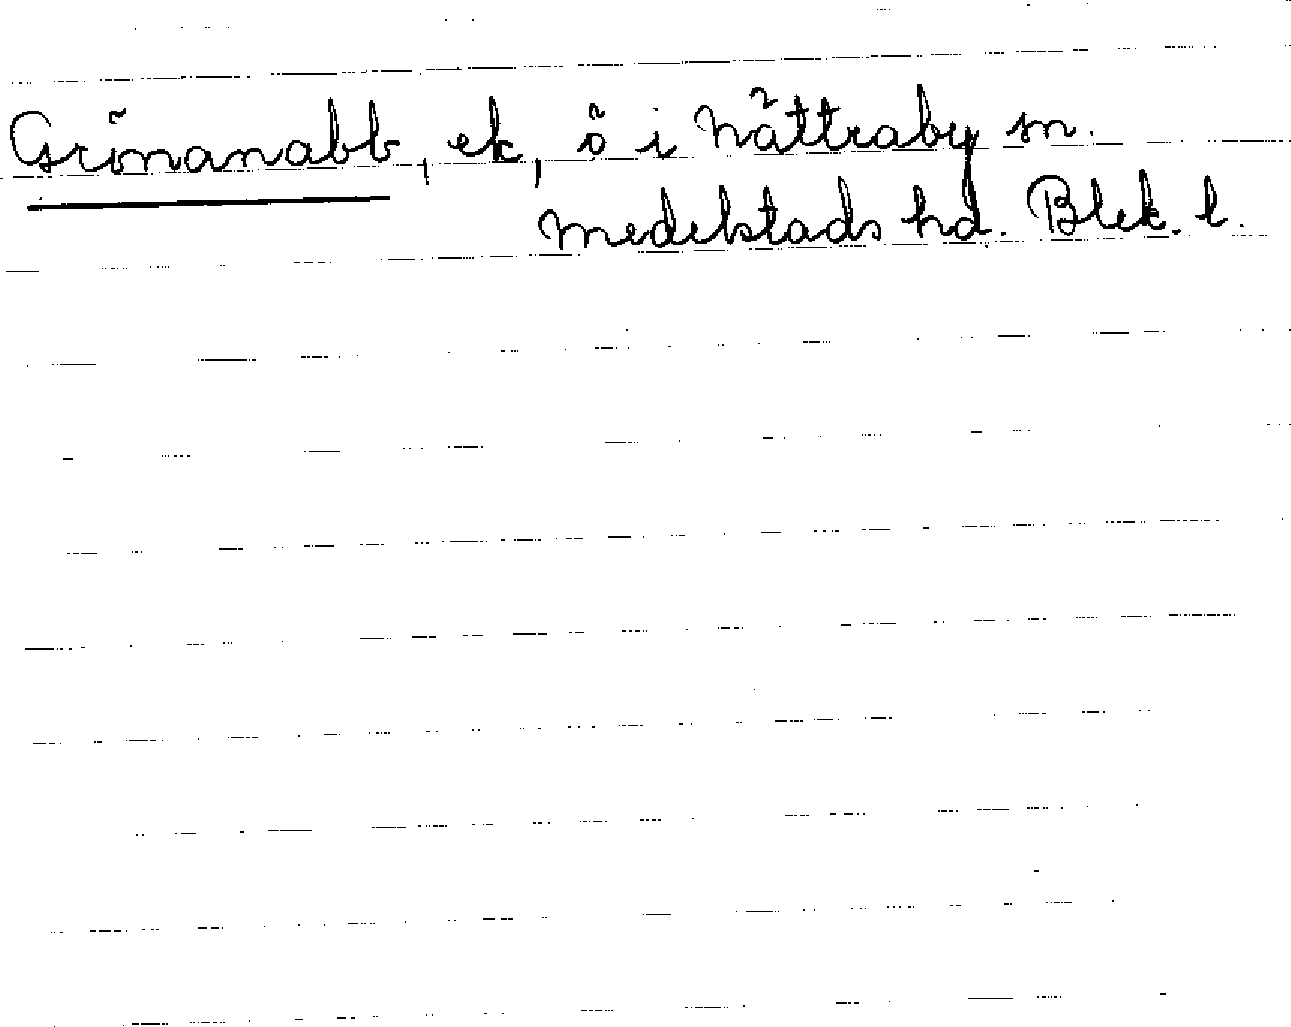 Grönanabb, ek, ö i Nättraby sn.
Medelstads hd. Blek. l.